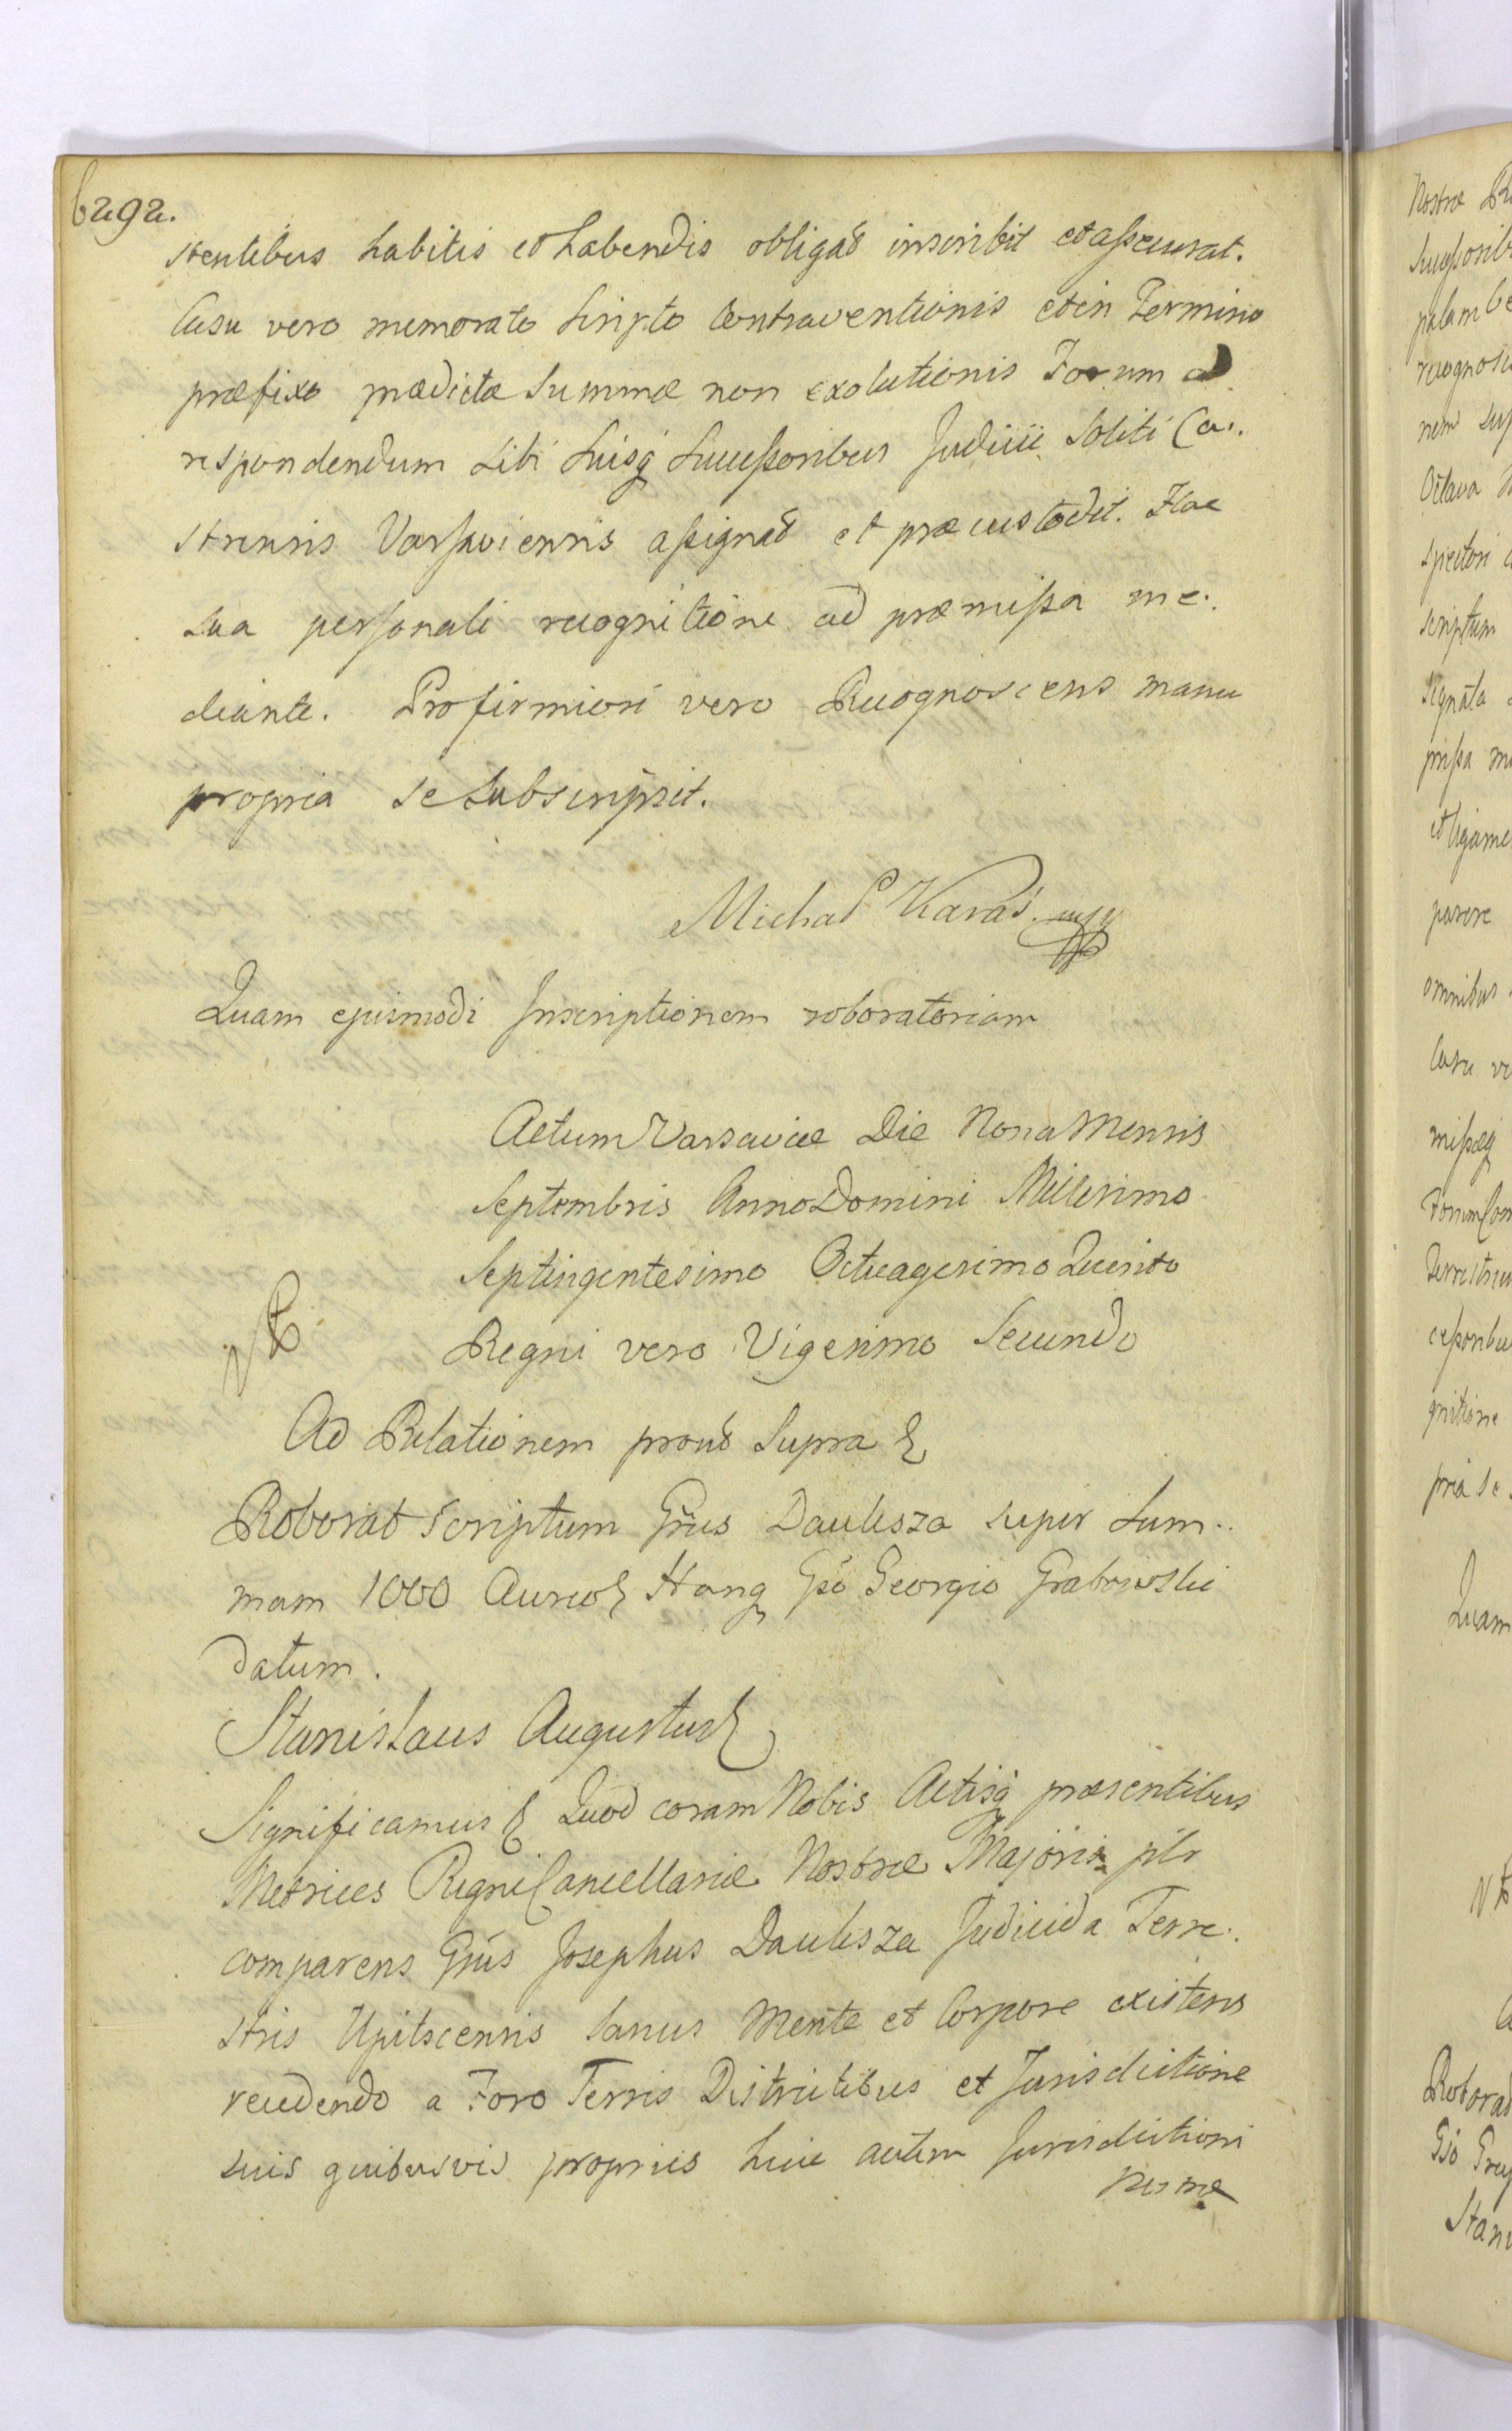 6292.
stentibus habitis et habendis obligat inscribit et aſsecurat.
Casu vero memorato Scripto Contraventionis et in Termino
præfixo prædictæ Summæ non exolutionis Forum ad
respondendum Sibi Suisq Succeſsoribus Judicii Soliti Ca-
strensis Varſaviensis aſsignat et præcustodit. Hac
sua perſonali recognitione ad præmiſsa me-
diante. Pro firmiori vero Recognoscens manu
propria se Subscripsit.
Michał Karaś mp
Quam ejusmodi Inscriptionem roboratoriam
Actum Varsaviæ Die Nona Mensis
Septembris Anno Domini Millesimo
Septingentesimo Octuagesimo Quinto
Regni vero Vigesimo Secundo
Ad Relationem prout Supra &
Roborat Scriptum Gsus Daulesza super Sum-
mam 1000 Aureor Hung Gso Georgio Grabowski
datum.
Stanislaus Augustus &
Significamus & Quod coram Nobis Actisq præsentibus
Metrices Regni Cancellariæ Nostræ Majoris plr
comparens Gsus Josephus Daulesza Judicida Terre-
stris Upitscensis Sanus Mente et Corpore existens
recedendo a Foro Terris Districtibus et Jurisdictione
suis quibusvis propriis huic autem Jurisdictioni
Nostræ
Nostræ
Succeſsorib
palam
recognosc
nem sup
Octava
spectori
scriptum
signata
priſsa
obligame
parere
omnibus
Casu ve
miſsæq
Forum Com
Terrestrium
ceſsoribus
gnitione
pria se
Quam
Roborat
Gso
Stani